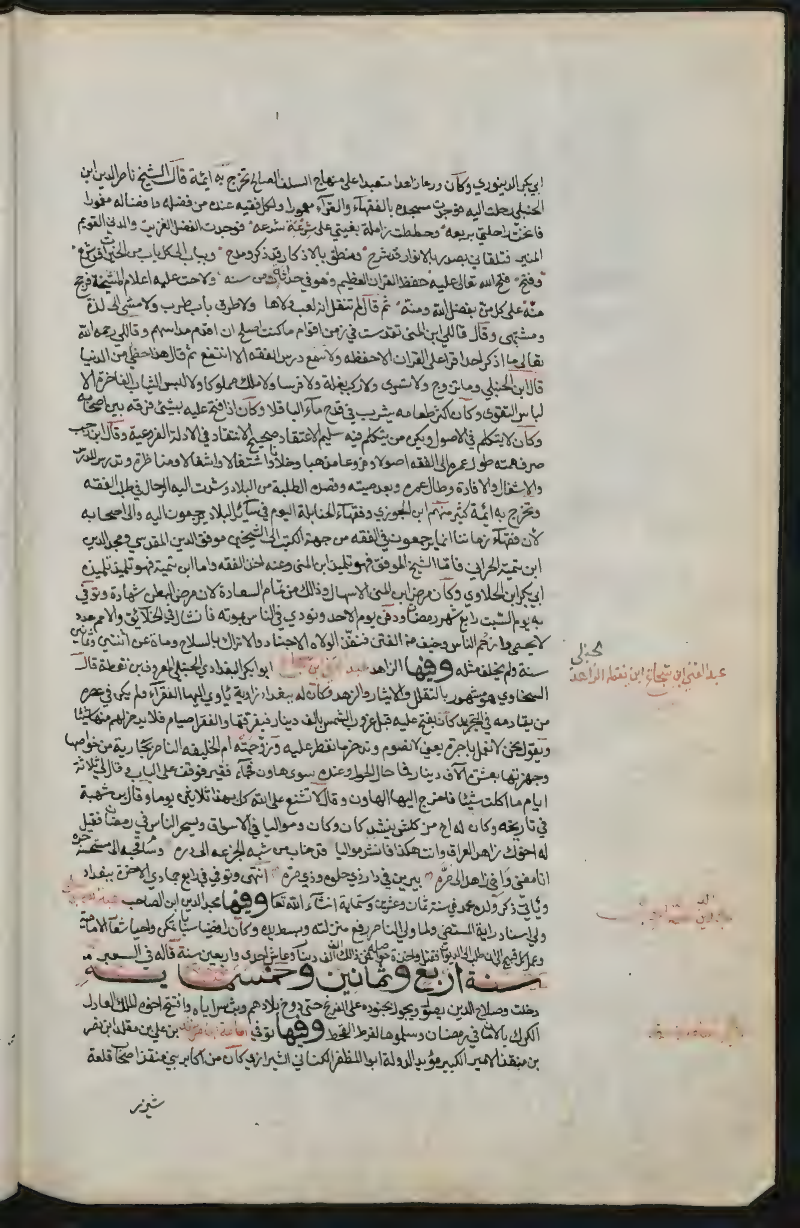 ابى بكر الدينورى وكان ورعا زاهدا متعبدا على منهاج السلف الصالح تخرج به ايمة قال الشيخ ناصر الدين ابن
الحنبلى رحلت اليه فوجدت مسجده بالفقهاء والقراء معمورا وكل فقيه عنده من فضله وافضاله مغمورا
فانخت راحلتى بربعه وحططت زاملة بغيتى على شرعة شرعه فوجدت الفضل الغزير والدين القويم
المنير فتلقانى بصدر بالانوار قد شرح ومنطق بالاذكار قد ذكر ومدح وبباب الى كل باب من الخيرات قد شرع
وفتح فتح الله تعالى عليه حفظ القران العظيم وهو فى حداثة من سنه ولاحت عليه اعلام المشيخة فرجح
منه على كل من بفضل الله ومنه ثم قال لم تنقل انه لعب ولا لها ولا طرق باب طرب ولا مشى الى لذة
ومشتهى وقال قال لى ابن المنى تقدست فى زمن اقوام ماكنت اصلح ان اقدم مداسهم وقال لى رحمه الله
تعالى ما اذكر احدا قرا على القران الا حفظه ولا سمع درس الفقه الا انتفع ثم قال هذا حظى من الدنيا
قال ابن الحنبلى وما تزوج ولا تسرى ولا ركب بغلة ولا فرسا ولا ملك مملوكا ولا لبس الثياب الفاخرة الا
لباس التقوى وكان اكثر طعامه يشرب فى قدح ماء الباقلا وكان اذا فتح عليه بشئ فرقه بين اصحابه
وكان لا يتكلم فى الاصول ويكره من يتكلم فيه سليم الاعتقاد صحيح الانتقاد فى الادلة الفروعية وقال ابن رجب
صرف همته طول عمره الى الفقه اصولا وفروعا مذهبا وخلافا واشتغالا واشغالا ومناظرة وتدريس للدرس
والاشغال والافادة وطال عمره وبعد صيته وقصده الطلبة من البلاد وشدت اليه الرحال فى طلب الفقه
وتخرج به ايمة كثير منهم ابن الجوزى وفقهاء الحنابلة اليوم فى سائر البلاد يرجعون اليه والى اصحابه
لان فقهاء زماننا انما يرجعون فى الفقه من جهة الكتب الى الشيخين موفق الدين المقدسى ومجد الدين
ابن تيمية الحرانى فاما الشيخ الموفق فهو تلميذ ابن المنى وعنه اخذ الفقه واما ابن تيمية فهو تلميذ تلميذه
ابى بكر ابن الحلاوى وكان مرض ابن المنى الاسهال وذلك من تمام السعادة لان مرض البطن شهادة وتوفى
به يوم السبت رابع شهر رمضان ودفن يوم الاحد ونودى فى الناس بموته فانثال فى الخلايق والامم عدد
لا يحصى وازدحم الناس وخيف من الفتن فنفذ الولاه الاجناد والاتراك بالسلاح ومات عن اثنتى وثمانين
سنة ولم يخلف مثله وفيها الزاهد عبد الغنى بن شجاع ابو بكر البغدادى الحنبلى المعروف بابن نقطة قال
السخاوى هو مشهور بالتقلل والايثار والزهد وكانت له ببغداد زاوية ياوى اليها الفقراء ولم يكن فى عصره
من يقاومه فى التجريد كان يفتح عليه قبل غروب الشمس بالف دينار فيفرقها والفقراء صيام فلا يدخر لهم منها شيئا
ويقول نحن لا نعمل باجرة يعنى لا نصوم وندخر ما نفطر عليه وزوجته ام الخليفة الناصر بجارية من خواصها
وجهزتها بعشرة الاف دينار فما حال الحول وعنده سوى هاون فجاء فقير فوقف على الباب وقال لى ثلاثة
ايام ما اكلت شيئا فاخرج اليه الهاون وقال لا تشنع على الله كل بهذا ثلاثين يوما وقال ابن شهبة
فى تاريخه وكان له اخ من كلش ينشد كان وكان ومواليا فى الاسواق ويسحر الناس فى رمضان فقيل
له اخوك زاهد العراق وانت هكذا فانشد مواليا قد خاب من شبه الجزعه الى دره وساقحبه الى مستحسنة حره
انا مغنى واخى زاهد الى مره بيرين فى دار ذى حلوه وذى مره انتهى وتوفى فى رابع جمادى الاخرة ببغداد
وياتى ذكر ولده محمد فى سنة ثمان وعشرين وستماية ان شاء الله تعالى وفيها مجد الدين ابن الصاحب
ولى استاد راية المستضئ ولما ولى الناصر رفع منزلته وبسط يده وكان رافضيا سبابا تمكن واحيا شعار الامامية
وعمل كل قبيح الى ان طلب الى الديوان فقتل واخذت حواصله فمن ذلك الف الف دينار وعاش احدى واربعين سنة قاله فى العبر
سنة اربع وثمانين وخمسماية
دخلت وصلاح الدين يصول ويجول بجنوده على الفرنج حتى دوخ بلادهم وبث سراياه وافتتح اخوه الملك العادل
الكرك بالامان فى رمضان وسلموها لفرط القحط وفيها توفى اسامة بن على بن مقلد ابن نصر
بن منقذ الامير الكبير مؤيد الدولة ابو المظفر الكنانى الشيزرى كان من اكابر بنى منقذ اصحاب قلعة
شيزر
حنبلى
عبد الغنى ابن شجاع ابن نقطه الزاهد